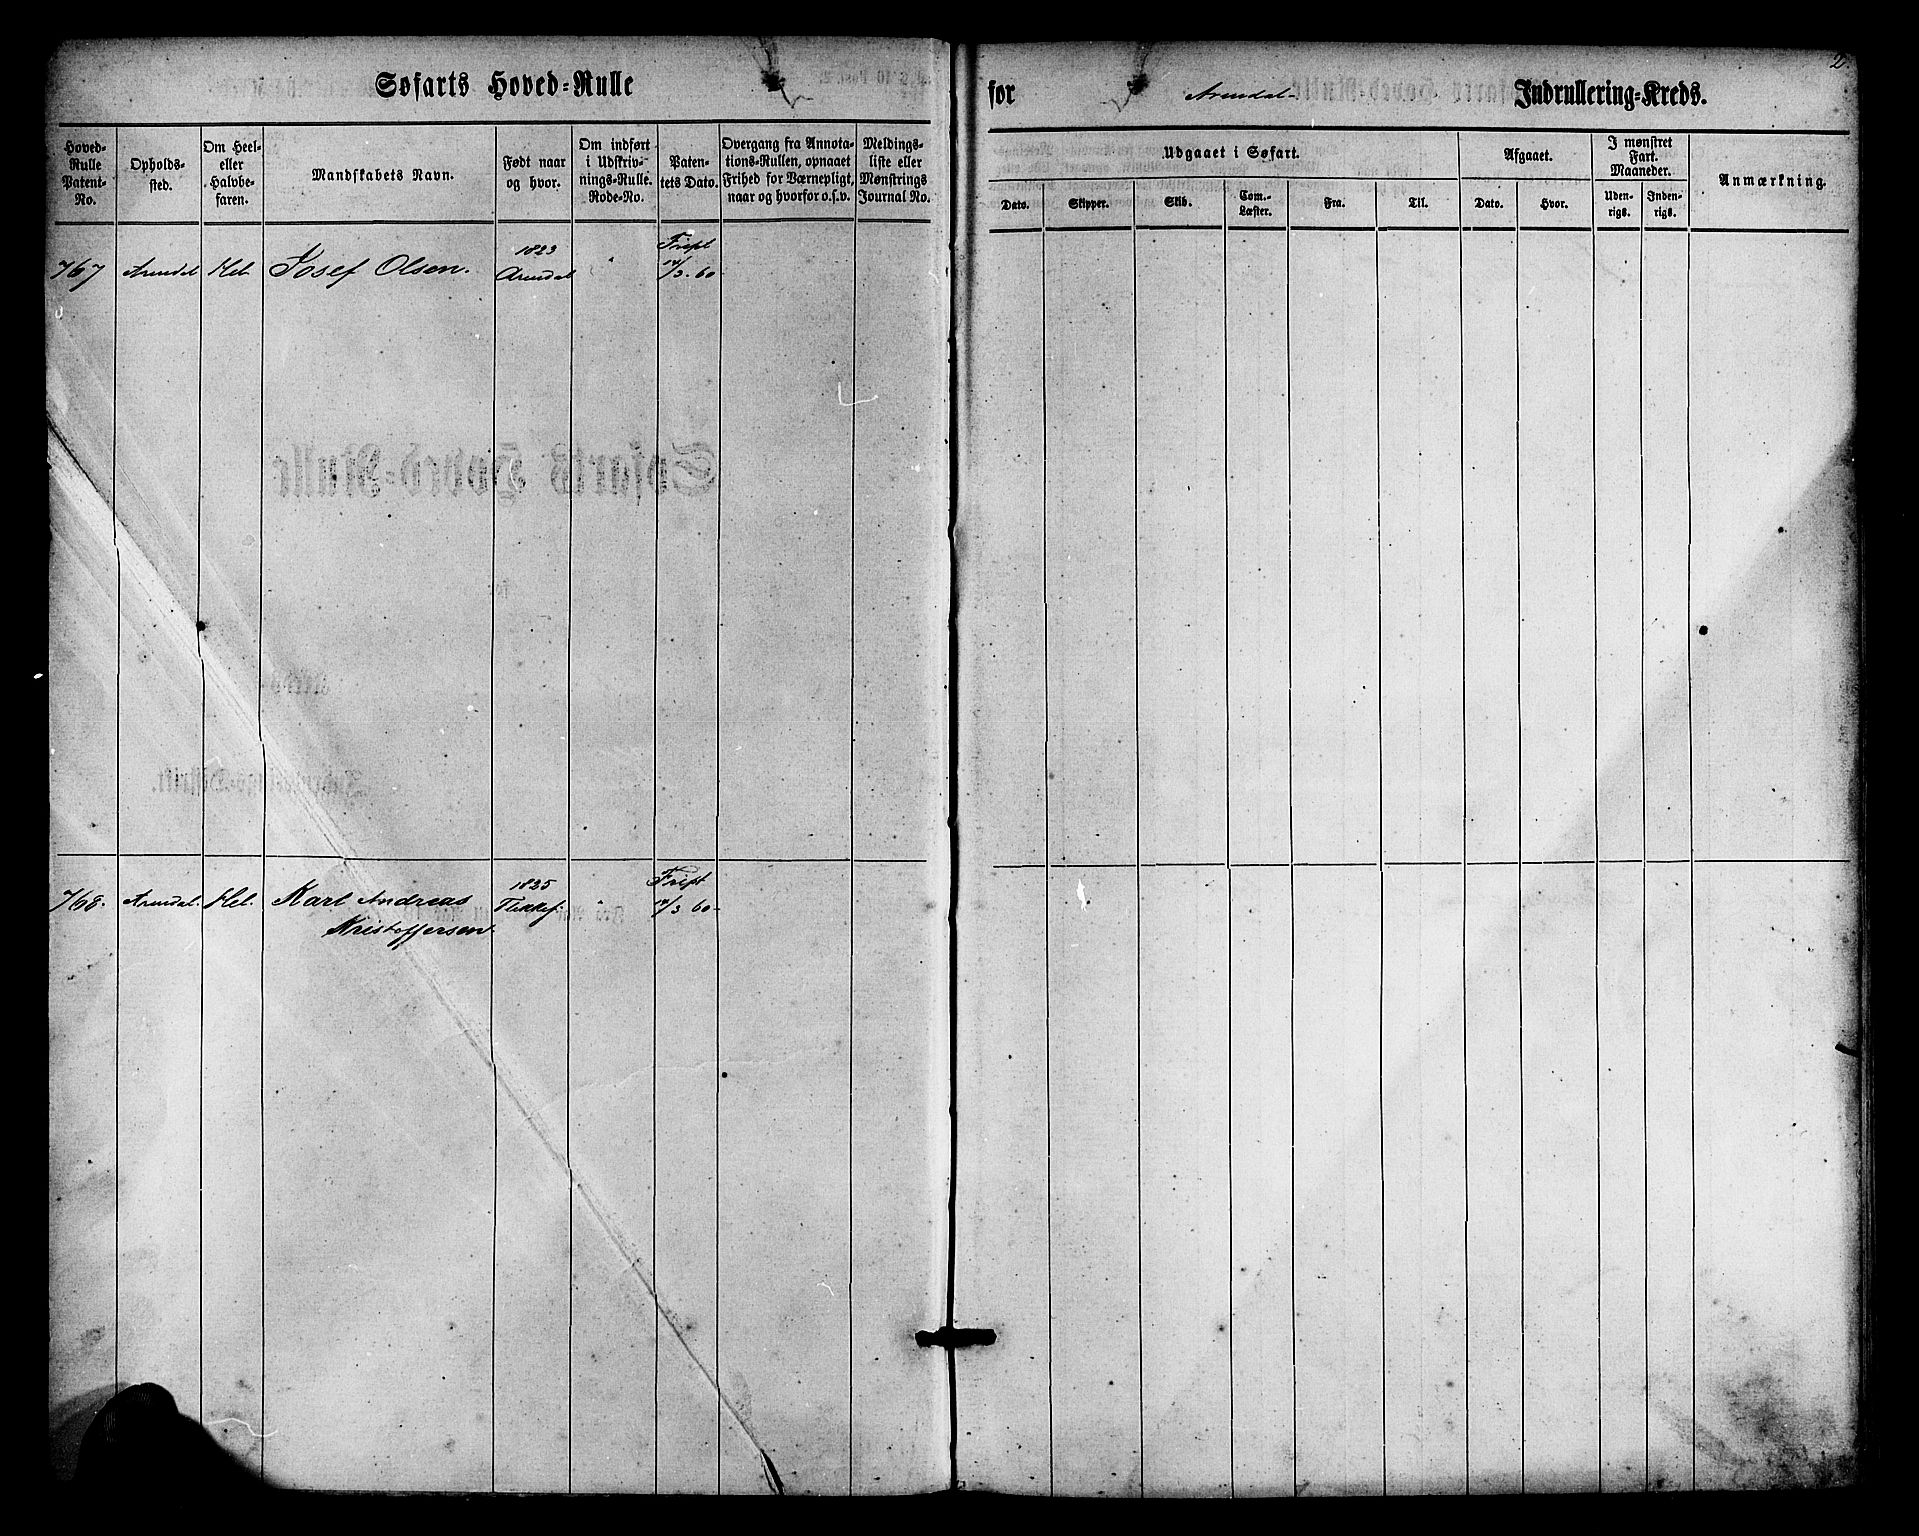 Søfarts Hoved-Rulle
for Arendal Indrullering-Kreds.
2
Hoved-Rulle Patent-No.
Opholds-sted.
Om Heel- eller Halvbe-faren.
Mandskabets Navn.
Født naar og hvor.
Om indført i Udskriv-nings-Rulle. Rode-No.
Paten-tets Dato.
Overgang fra Annota-tions-Rullen, opnaaet Frihed for Værnepligt, naar og hvorfor o.s.v.
Meldings-liste eller Mønstrings Journal No.
Udgaaet i Søfart.
Dato. Skipper. Skib. Com.-Læster. Fra. Til.
Afgaaet.
Dato. Hvor.
I mønstret Fart. Maaneder.
Uden-rigs. Inden-rigs.
Anmærkning.
1823 Fript
767 Arendal Hel. Josef Olsen. Arendal " 14/3. 60
1825 Fript
768. Arendal. Hel. Karl Andreas Flekkef: " 14/3 60
Kristoffersen